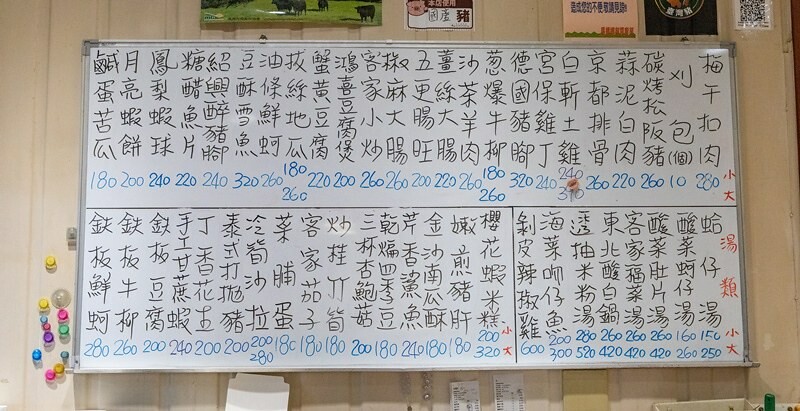 本店使用
國產豬
造成您的不便敬請見諒!
梅干扣肉 280
刈包(個) 10
碳烤松阪豬 260
蒜泥白肉 220
京都排骨 260
白斬土雞 240
宮保雞丁 240
德國豬腳 320
蔥爆牛柳 180 260
沙茶羊肉 260
薑絲大腸 220
五更腸旺 200
椒麻大腸 260
客家小炒 260
鴻喜豆腐煲 200
蟹黃豆腐 220
拔絲地瓜 180 260
油條鮮蚵 260
豆酥雪魚 320
紹興醉豬腳 240
糖醋魚片 220
鳳梨蝦球 240
月亮蝦餅 200
鹹蛋苦瓜 180
小大
湯類 小大
蛤仔湯 150 250
酸菜蚵仔湯 160 260
酸菜肚片湯 260 420
客家福菜湯 260 420
東北酸白鍋 260 420
透抽米粉湯 280 520
海菜吻仔魚 200 300
剝皮辣椒雞 600
小大
櫻花蝦米糕 200 320
嫩煎豬肝 180
金沙南瓜酥 180
芹香魚 240
乾煸四季豆 180
三杯杏鮑菇 200
炒桂竹筍 180
客家茄子 180
菜脯蛋 180
冷筍沙拉 200 280
泰式打拋豬 200
丁香花生 200
手工甘蔗蝦 240
鐵板豆腐 200
鐵板牛柳 260
鐵板鮮蚵 280